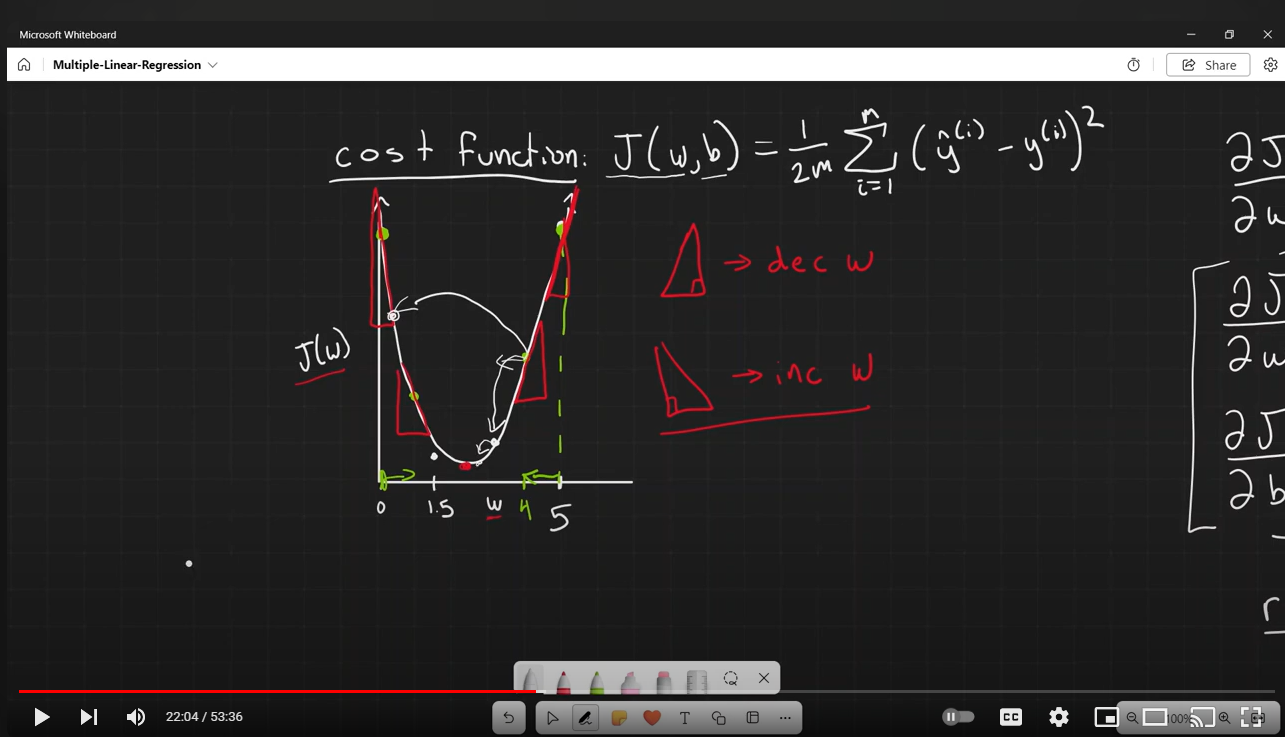 Microsoft Whiteboard
Multiple-Linear-Regression
Share
cost function: J(w,b) = 1/2m Σ_{i=1}^{m} (ŷ^(i) - y^(i))^2
∂J
∂w
→ dec w
∂J
∂w
J(w)
→ inc w
∂J
∂b
0 1.5 w 4 5
r
T
22:04 / 53:36
CC
100%